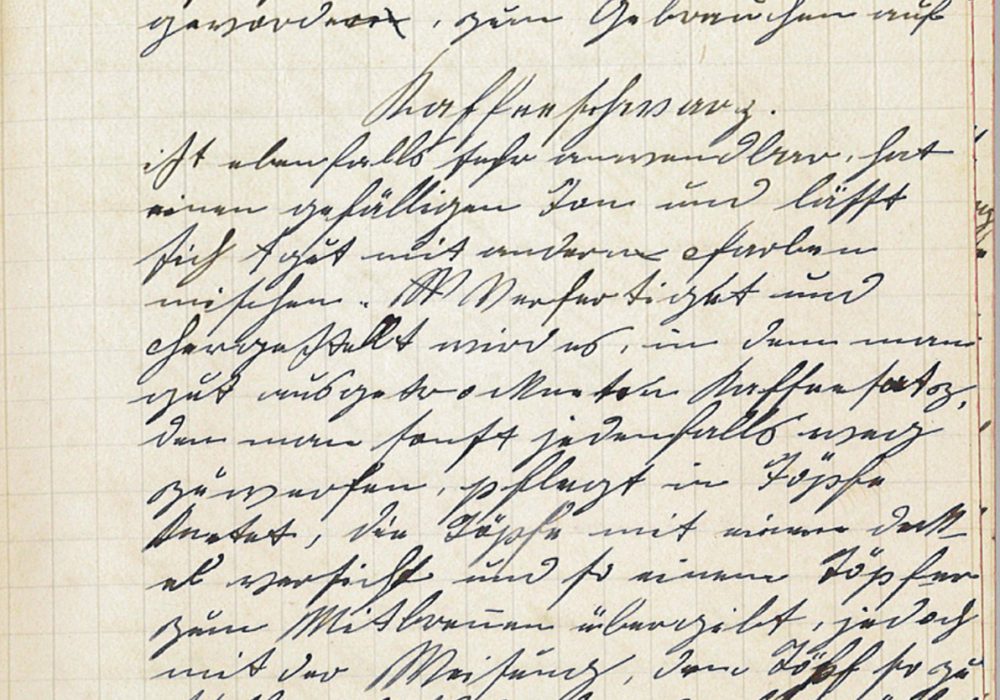 geworden, zum Gebrauchen auf
Kaffeeschwarz.
ist ebenfalls sehr anwendbar, hat
einen gefälligen Ton und lässt
sich gut mit andern Farben
mischen. Verfertiget und
hergestellt wird es, in dem man
gut ausgetrockneten Kaffeesatz,
den man sonst jedenfalls weg
zuwerfen, pflegt in Töpfe
knetet, die Töpfe mit einem Deck-
el versieht und so einem Töpfer
zum Mitbrennen übergibt, jedoch
mit der Weisung, den Topf so zu